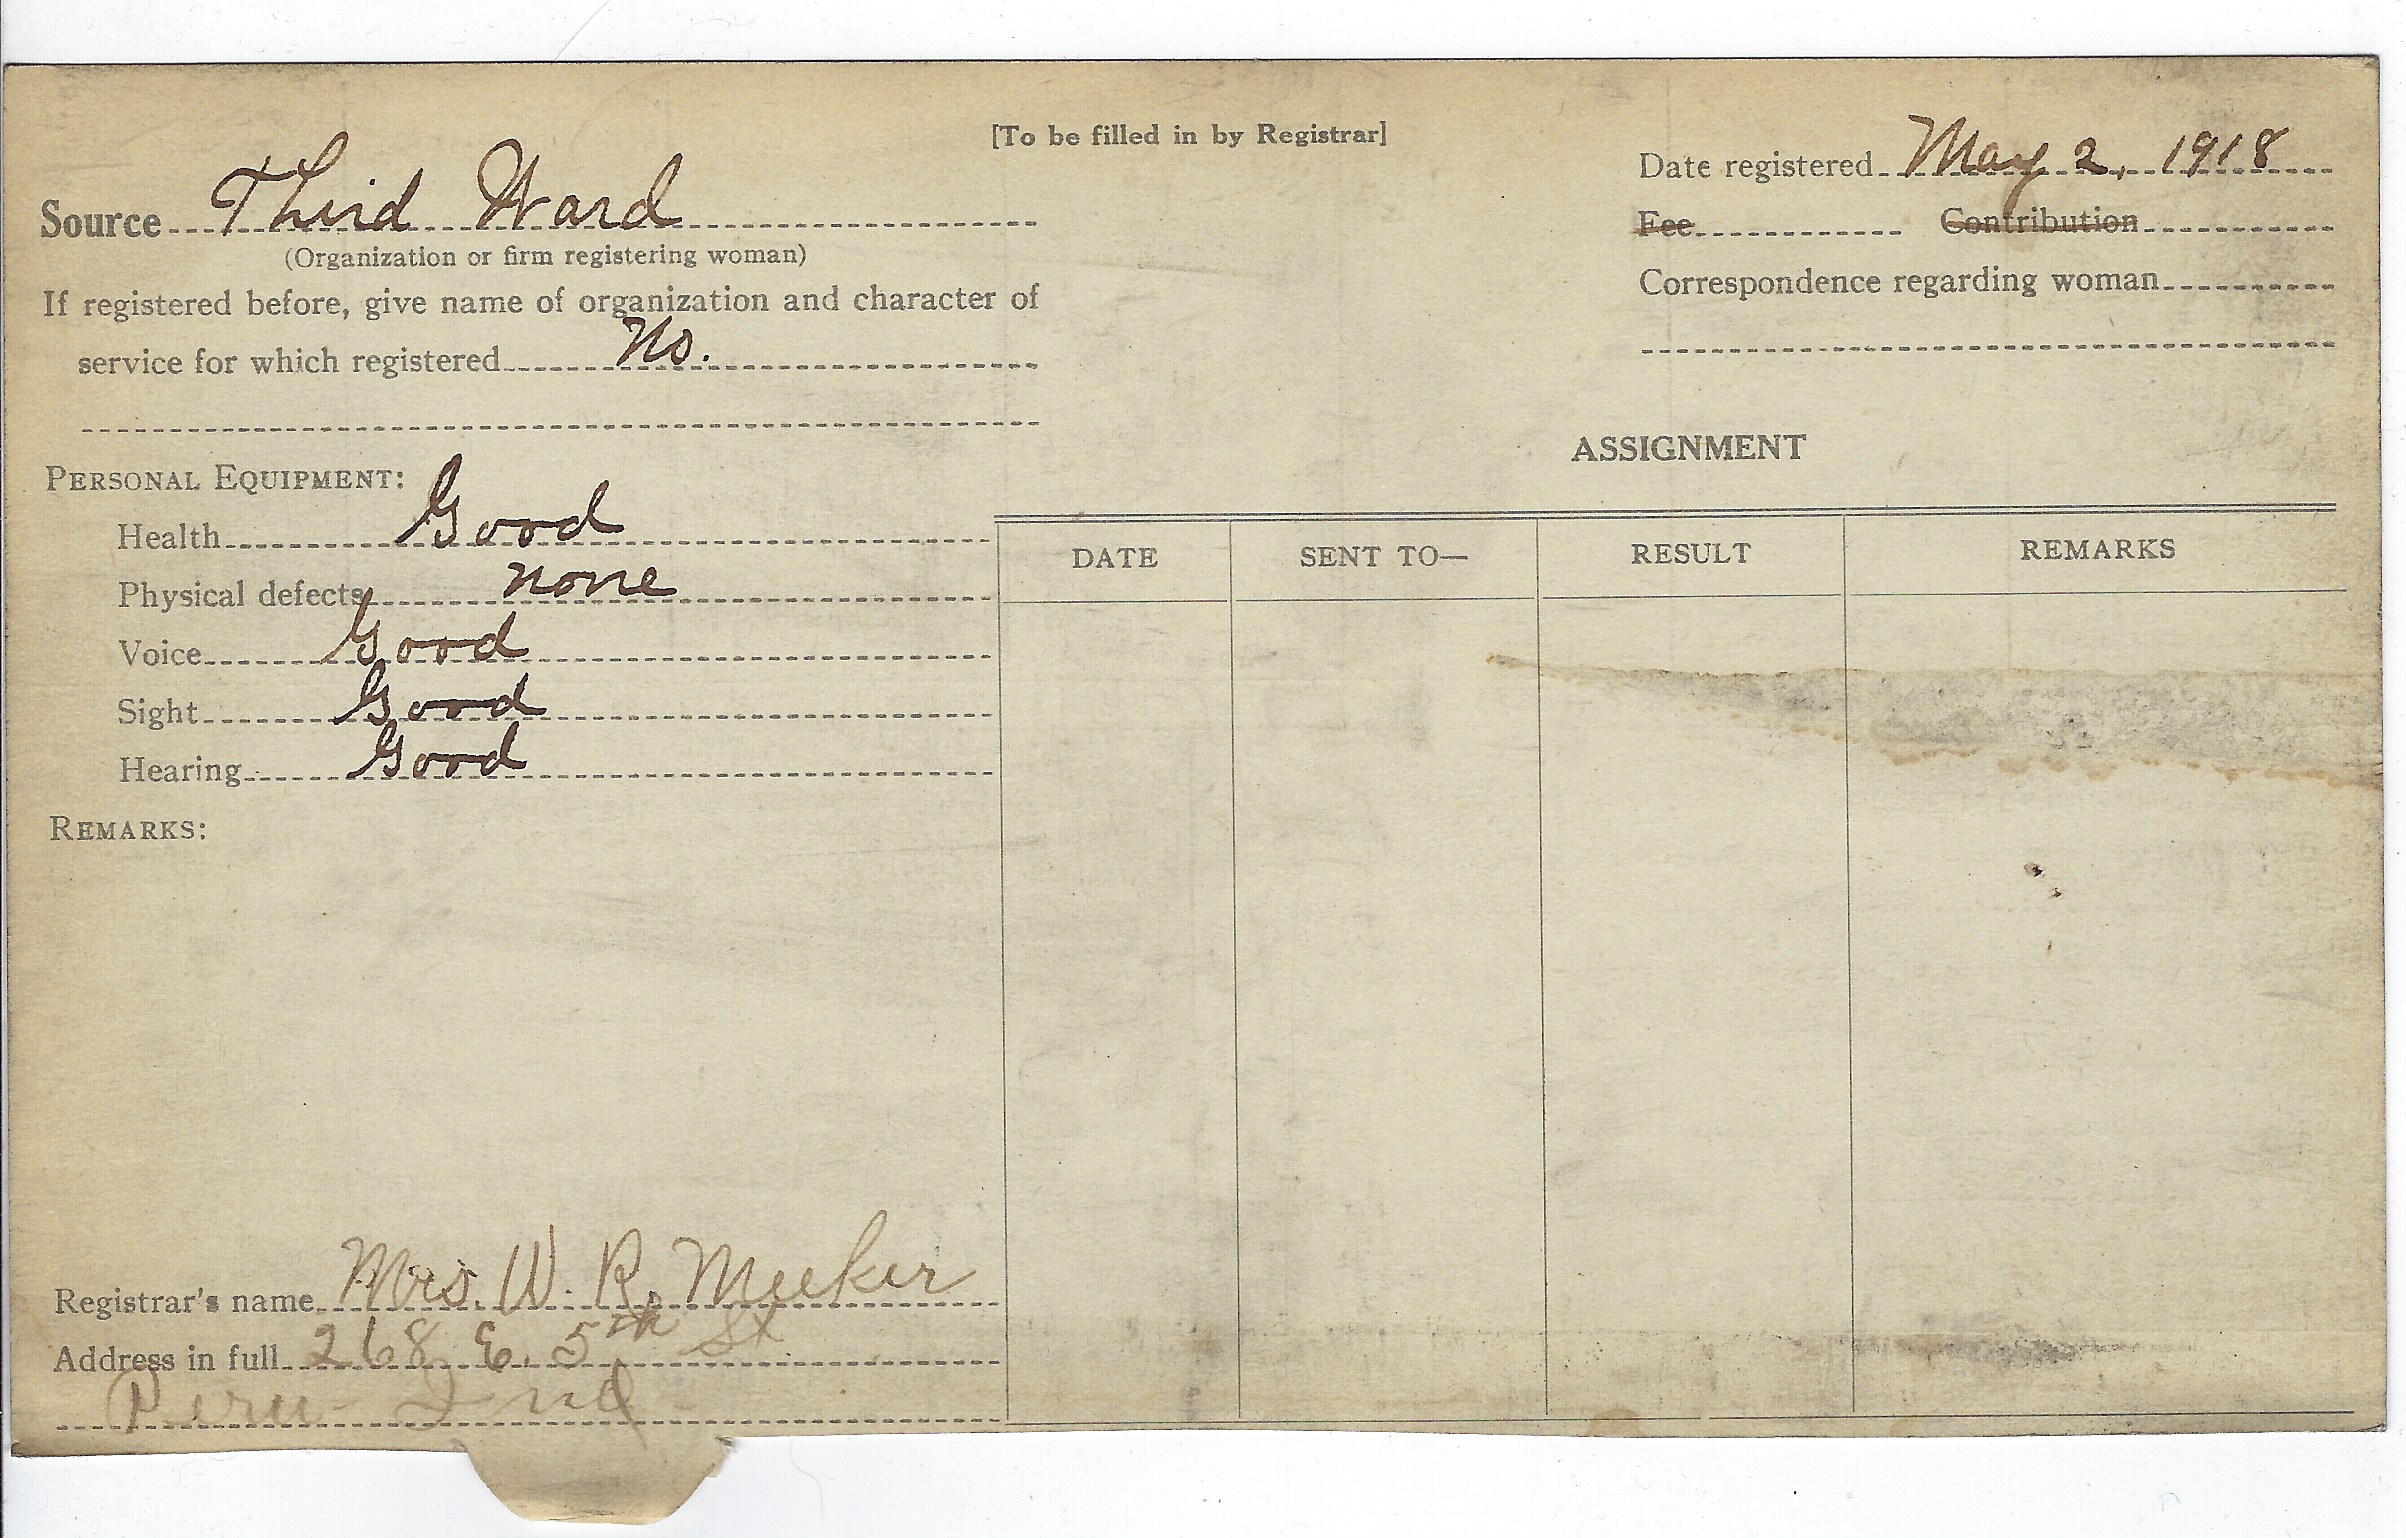 [To be filled in by Registrar]
Source Third Ward
(Organization or firm registering woman)
If registered before, give name of organization and character of
service for which registered No.
Date registered May 2, 1918
Fee Contribution
Correspondence regarding woman
PERSONAL EQUIPMENT:
Health Good
Physical defects none
Voice Good
Sight Good
Hearing Good
REMARKS:
ASSIGNMENT
DATE SENT TO— RESULT REMARKS
Registrar's name Mrs. W. R. Meeker
Address in full 268 E. 5th St
Peru Ind